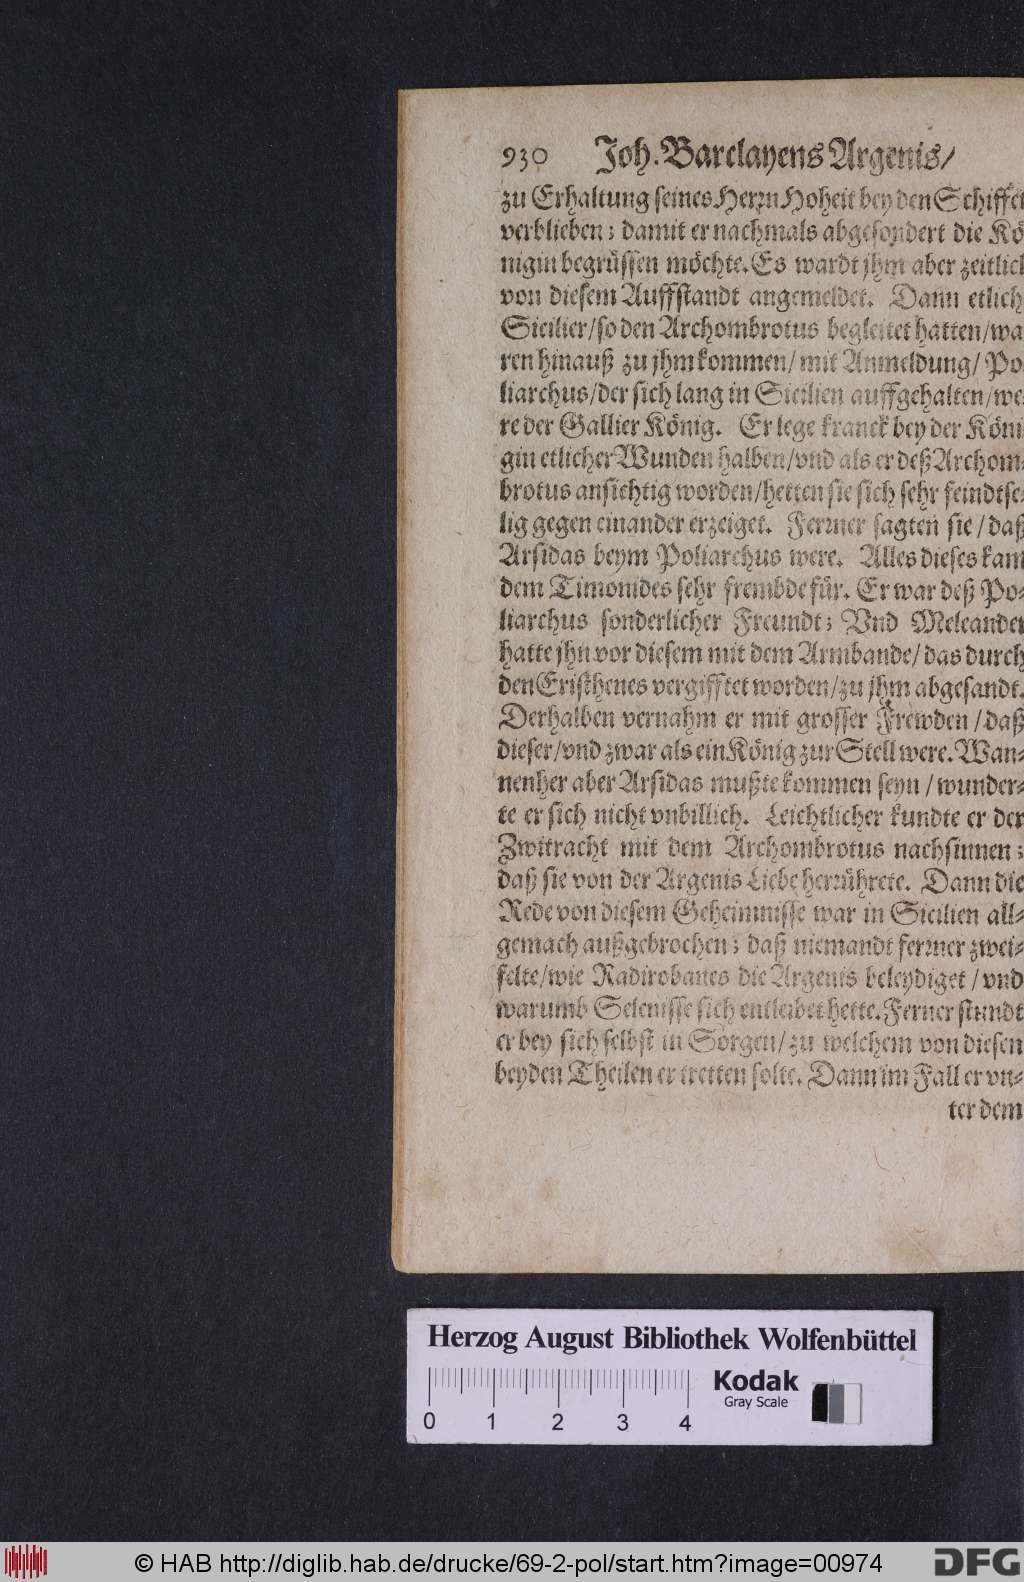 930 Joh. Barclayens Argenis/
zu Erhaltung seines Herrn Hoheit bey den Schiffen
verblieben; damit er nachmals abgesondert die Kö
nigin begrüssen möchte. Es wardt jhm aber zeitlich
von diesem Auffstandt angemeldet. Dann etliche
Sicilier/so den Archombrotus begleitet hatten/wa
ren hinauß zu jhm kommen/ mit Anmeldung/ Po
liarchus/der sich lang in Sicilien auffgehalten/we
re der Gallier König. Er lege kranck bey der Köni
gin etlicher Wunden halben/vnd als er deß Archom-
brotus ansichtig worden/hetten sie sich sehr feindtse-
lig gegen einander erzeiget. Ferrner sagten sie/daß
Arsidas beym Poliarchus were. Alles dieses kam
dem Timonides sehr frembde für. Er war deß Po-
liarchus sonderlicher Freundt; Vnd Meleander
hatte jhn vor diesem mit dem Armbande/das durch
den Eristhenes vergifftet worden/zu jhm abgesandt.
Derhalben vernahm er mit grosser Frewden/daß
dieser/vnd zwar als ein König zur Stell were. Wan-
nenher aber Arsidas mußte kommen seyn/wunder-
te er sich nicht vnbillich. Leichtlicher kundte er der
Zwitracht mit dem Archombrotus nachsinnen;
daß sie von der Argenis Liebe herrührete. Dann die
Rede von diesem Geheimnisse war in Sicilien all-
gemach außgebrochen; daß niemandt ferrner zwei-
felte/wie Radirobanes die Argenis beleydiget/vnd
warumb Selenisse sich entleibet hette. Ferner stundt
er bey sich selbst in Sorgen/zu welchem von diesen
beyden Theilen er tretten solte. Dann im Fall er vn-
ter dem
Herzog August Bibliothek Wolfenbüttel
0 1 2 3 4
Kodak
Gray Scale
© HAB http://diglib.hab.de/drucke/69-2-pol/start.htm?image=00974
DFG